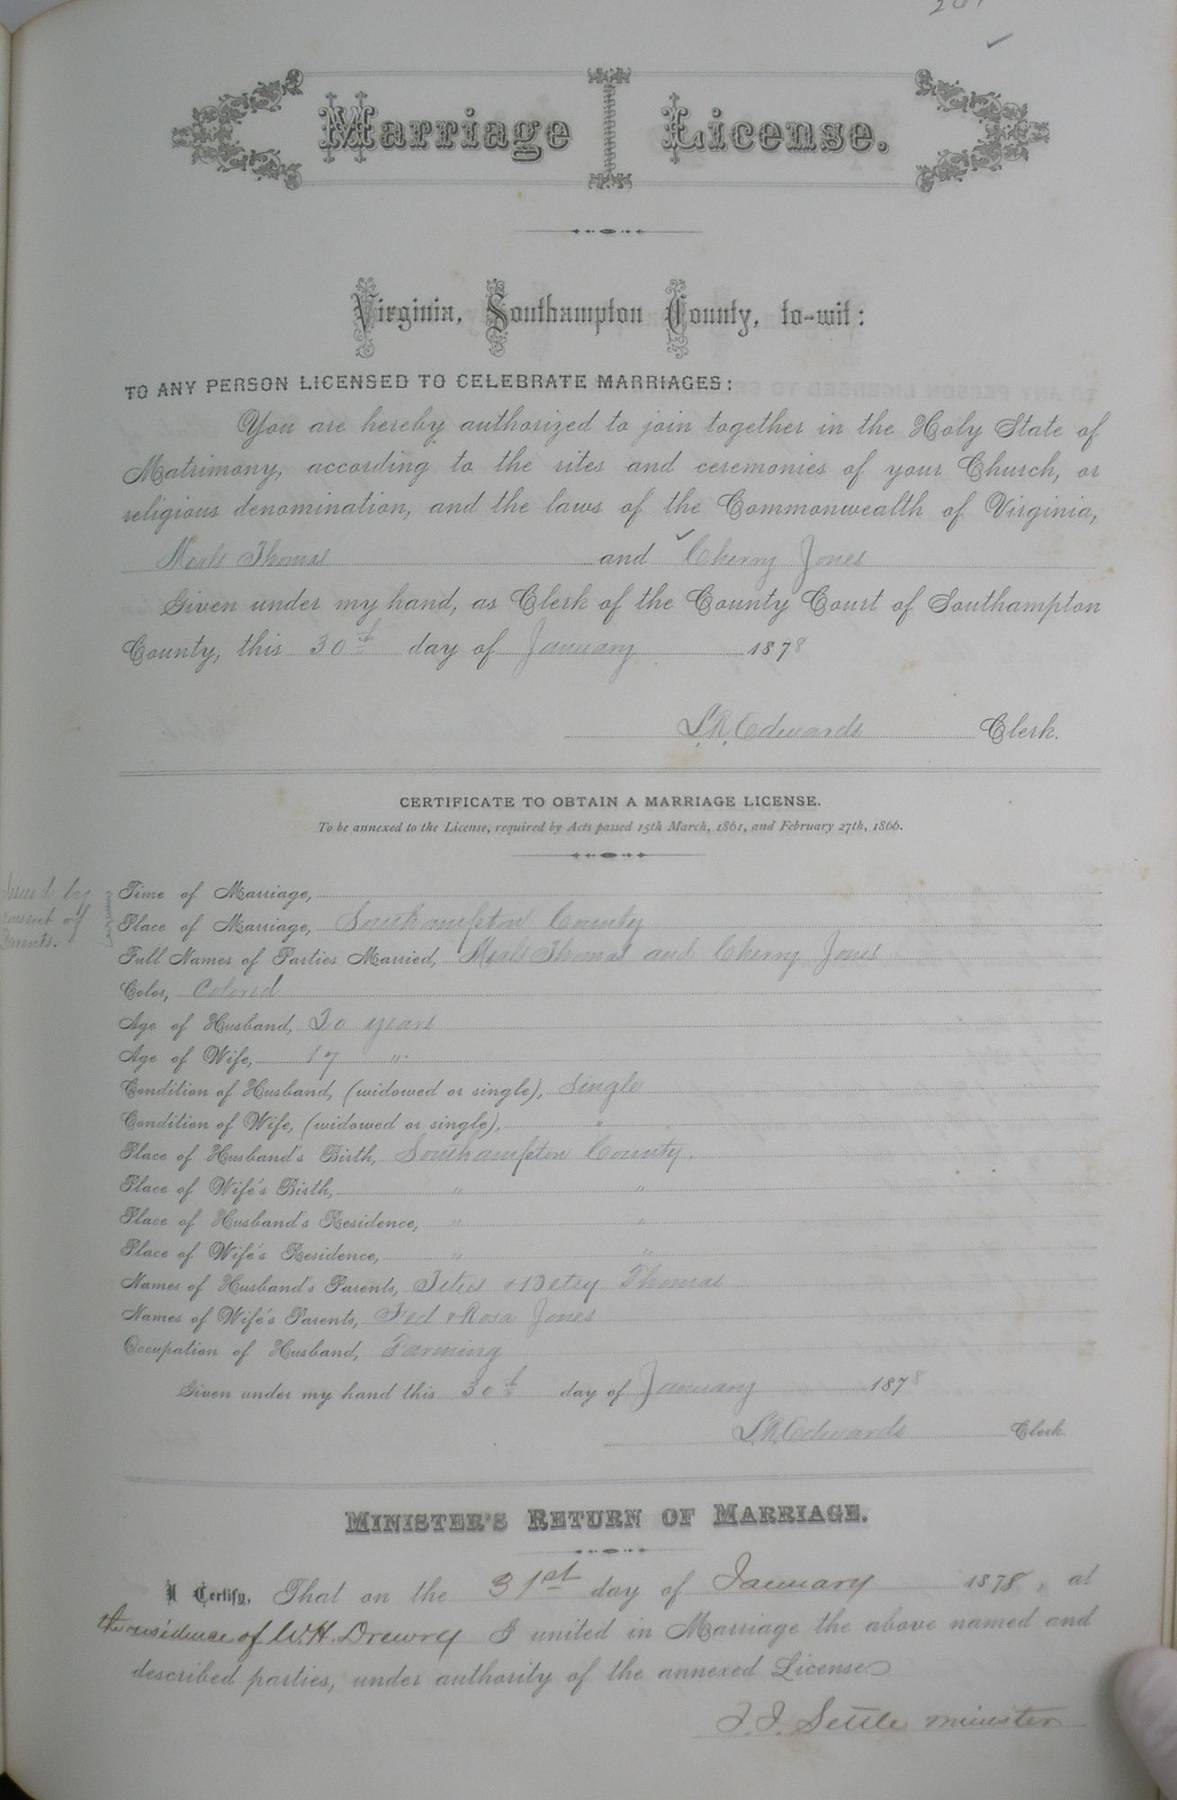 Marriage License.
Virginia, Southampton County, to-wit:
TO ANY PERSON LICENSED TO CELEBRATE MARRIAGES:
You are hereby authorized to join together in the Holy State of
Matrimony, according to the rites and ceremonies of your Church, or
religious denomination, and the laws of the Commonwealth of Virginia,
Thomas and Cherry Jones
Given under my hand, as Clerk of the County Court of Southampton
County, this 30th day of January 1878
L.R. Edwards Clerk.
CERTIFICATE TO OBTAIN A MARRIAGE LICENSE.
To be annexed to the License, required by Acts passed 15th March, 1861, and February 27th, 1866.
Issued by
consent of
Parents.
Time of Marriage,
Place of Marriage, Southampton County
Full Names of Parties Married, Thomas and Cherry Jones
Color, Colored
Age of Husband, 30 years
Age of Wife, 17 "
Condition of Husband, (widowed or single), Single
Condition of Wife, (widowed or single), "
Place of Husband's Birth, Southampton County.
Place of Wife's Birth, " "
Place of Husband's Residence, " "
Place of Wife's Residence, " "
Names of Husband's Parents, Titus & Betsy Thomas
Names of Wife's Parents, Ned & Rosa Jones
Occupation of Husband, Farming
Given under my hand this 30th day of January 1878
L.R. Edwards Clerk.
MINISTER'S RETURN OF MARRIAGE.
I Certify, That on the 31st day of January 1878, at
the residence of W.H. Drewry I united in Marriage the above named and
described parties, under authority of the annexed License
J.J. Settle minister